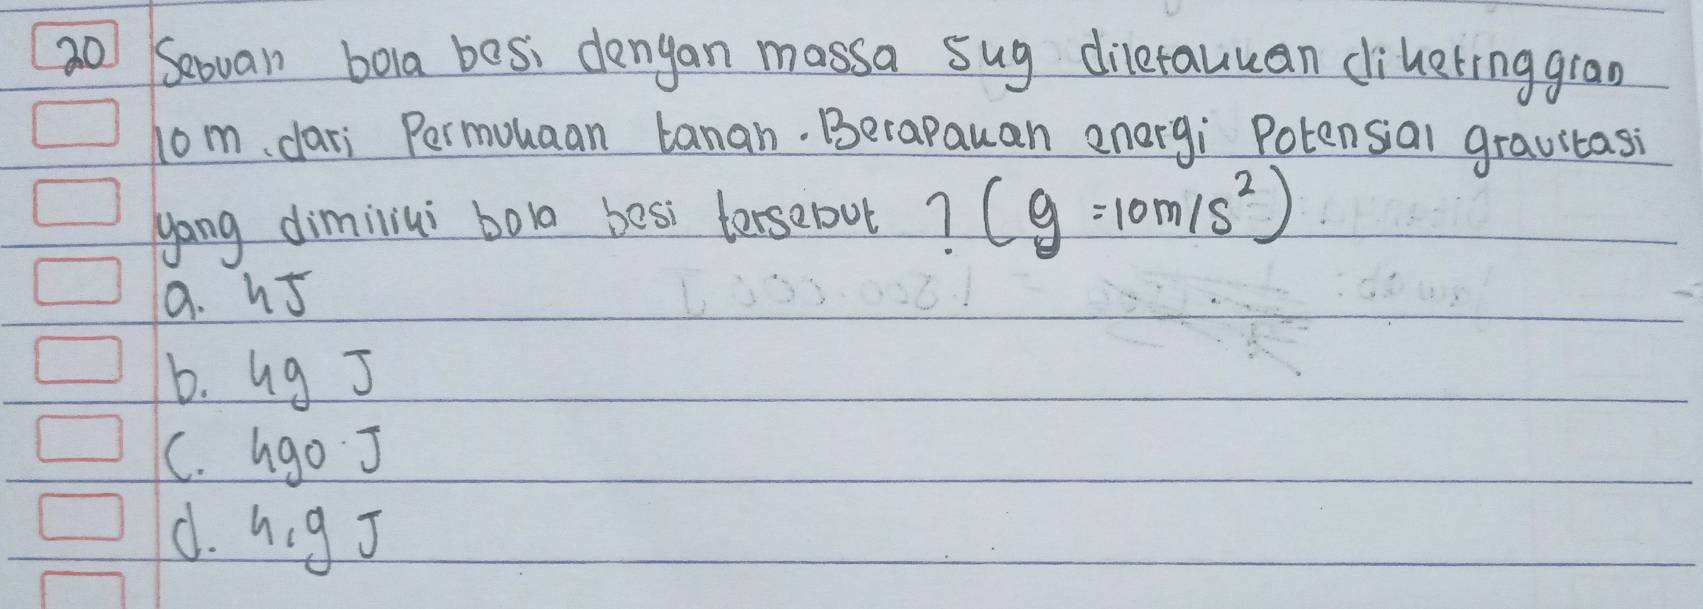 20 Sebuah bola besi dengan massa 5kg diletakkan diketinggian
10 m. dari Permukaan tanah. Berapakah energi Potensial gravitasi
yang dimiliki bola besi tersebut ? (g = 10 m/s²)
a. 4J
b. 49 J
c. 490 J
d. 4,9 J